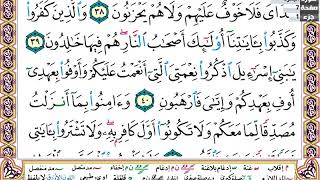 هُدَايَ فَلَا خَوْفٌ عَلَيْهِمْ وَلَا هُمْ يَحْزَنُونَ ٣٨ وَالَّذِينَ كَفَرُوا
وَكَذَّبُوا بِآيَاتِنَا أُولَٰئِكَ أَصْحَابُ النَّارِ هُمْ فِيهَا خَالِدُونَ ٣٩
يَٰبَنِىٓ إِسْرَٰٓءِيلَ اذْكُرُوا نِعْمَتِىَ الَّتِىٓ أَنْعَمْتُ عَلَيْكُمْ وَأَوْفُوا بِعَهْدِىٓ
أُوفِ بِعَهْدِكُمْ وَإِيَّٰىَ فَارْهَبُونِ ٤٠ وَءَامِنُوا بِمَآ أَنزَلْتُ
مُصَدِّقًا لِّمَا مَعَكُمْ وَلَا تَكُونُوٓا أَوَّلَ كَافِرٍ بِهِۦ وَلَا تَشْتَرُوا بِـَٔايَٰتِى